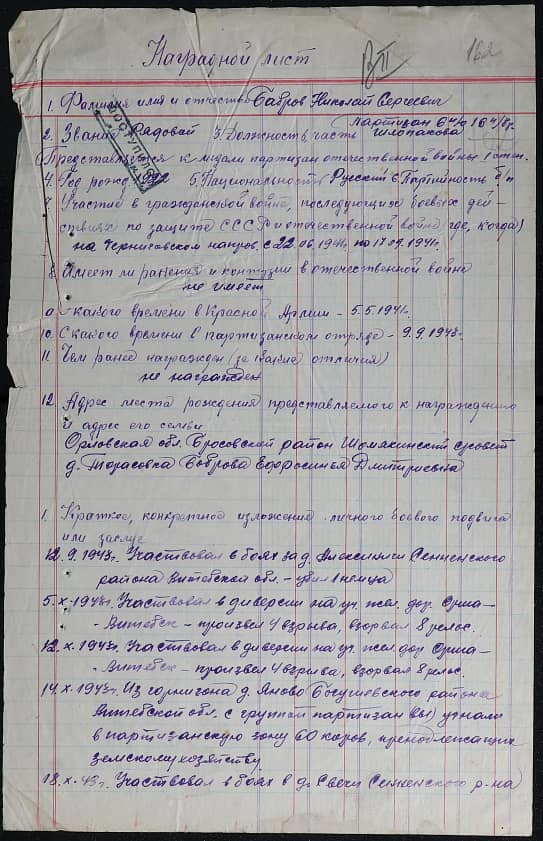 Наградной лист
162
1. Фамилия имя и отчество Бабров Николай Сергеевич
2. Звание Рядовой 3. Должность, часть партизан 6 отр 16
Представляется к медали партизан отечественной войны I степ.
4. Год рожд. 5. Национальность Русский 6. Партийность б/п
7. Участие в гражданской войне, последующих боевых дей-
ствиях по защите СССР и отечественной войне (где, когда)
на Черниговском напров. с 22.06.1941г по 17.09.1941г.
8. Имеет ли ранения и контузии в отечественной войне
не имеет
9. с какого времени в Красной Армии - 5.5.1941г.
10. С какого времени в партизанском отряде - 9.9.1943г.
11. Чем ранее награжден (за какие отличия)
не награжден
12. Адрес места рождения представляемого к награждению
и адрес его семьи
Орловская обл. Бросовский район сусовет
д. Торасовка Боброва Ефросинья Дмитриевна
1. Краткое, конкретное изложение личного боевого подвига
или заслуг
12.9.1943г. Участвовал в боях за д. Алексиничи Сенненского
района Витебской обл. - убил 1 немца
5.X-1943г. Участвовал в диверсии на уч. жел. дор. Орша-
- Витебск - произвел 4 взрыва, взорвал 8 релос.
12.X-1943г. Участвовал в диверсии на уч. жел. дор Орша-
- Витебск - произвел 4 взрыва, взорвал 8 релос.
14.X-1943г. Из горнизона д. Яново Богушевского района
Витебской обл. с группой партизан вы угнали
в партизанскую зону 60 коров, преподлежащих
земскому хозяйству
18.X-43г. Участвовал в боях в д. Свечи Сенненского р-на